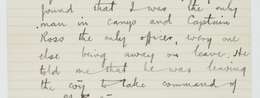 found that I was the only
man in camp and Captain
Ross the only officer, every one
else being away on leave. He
told me that he was leaving
the coy to take command of